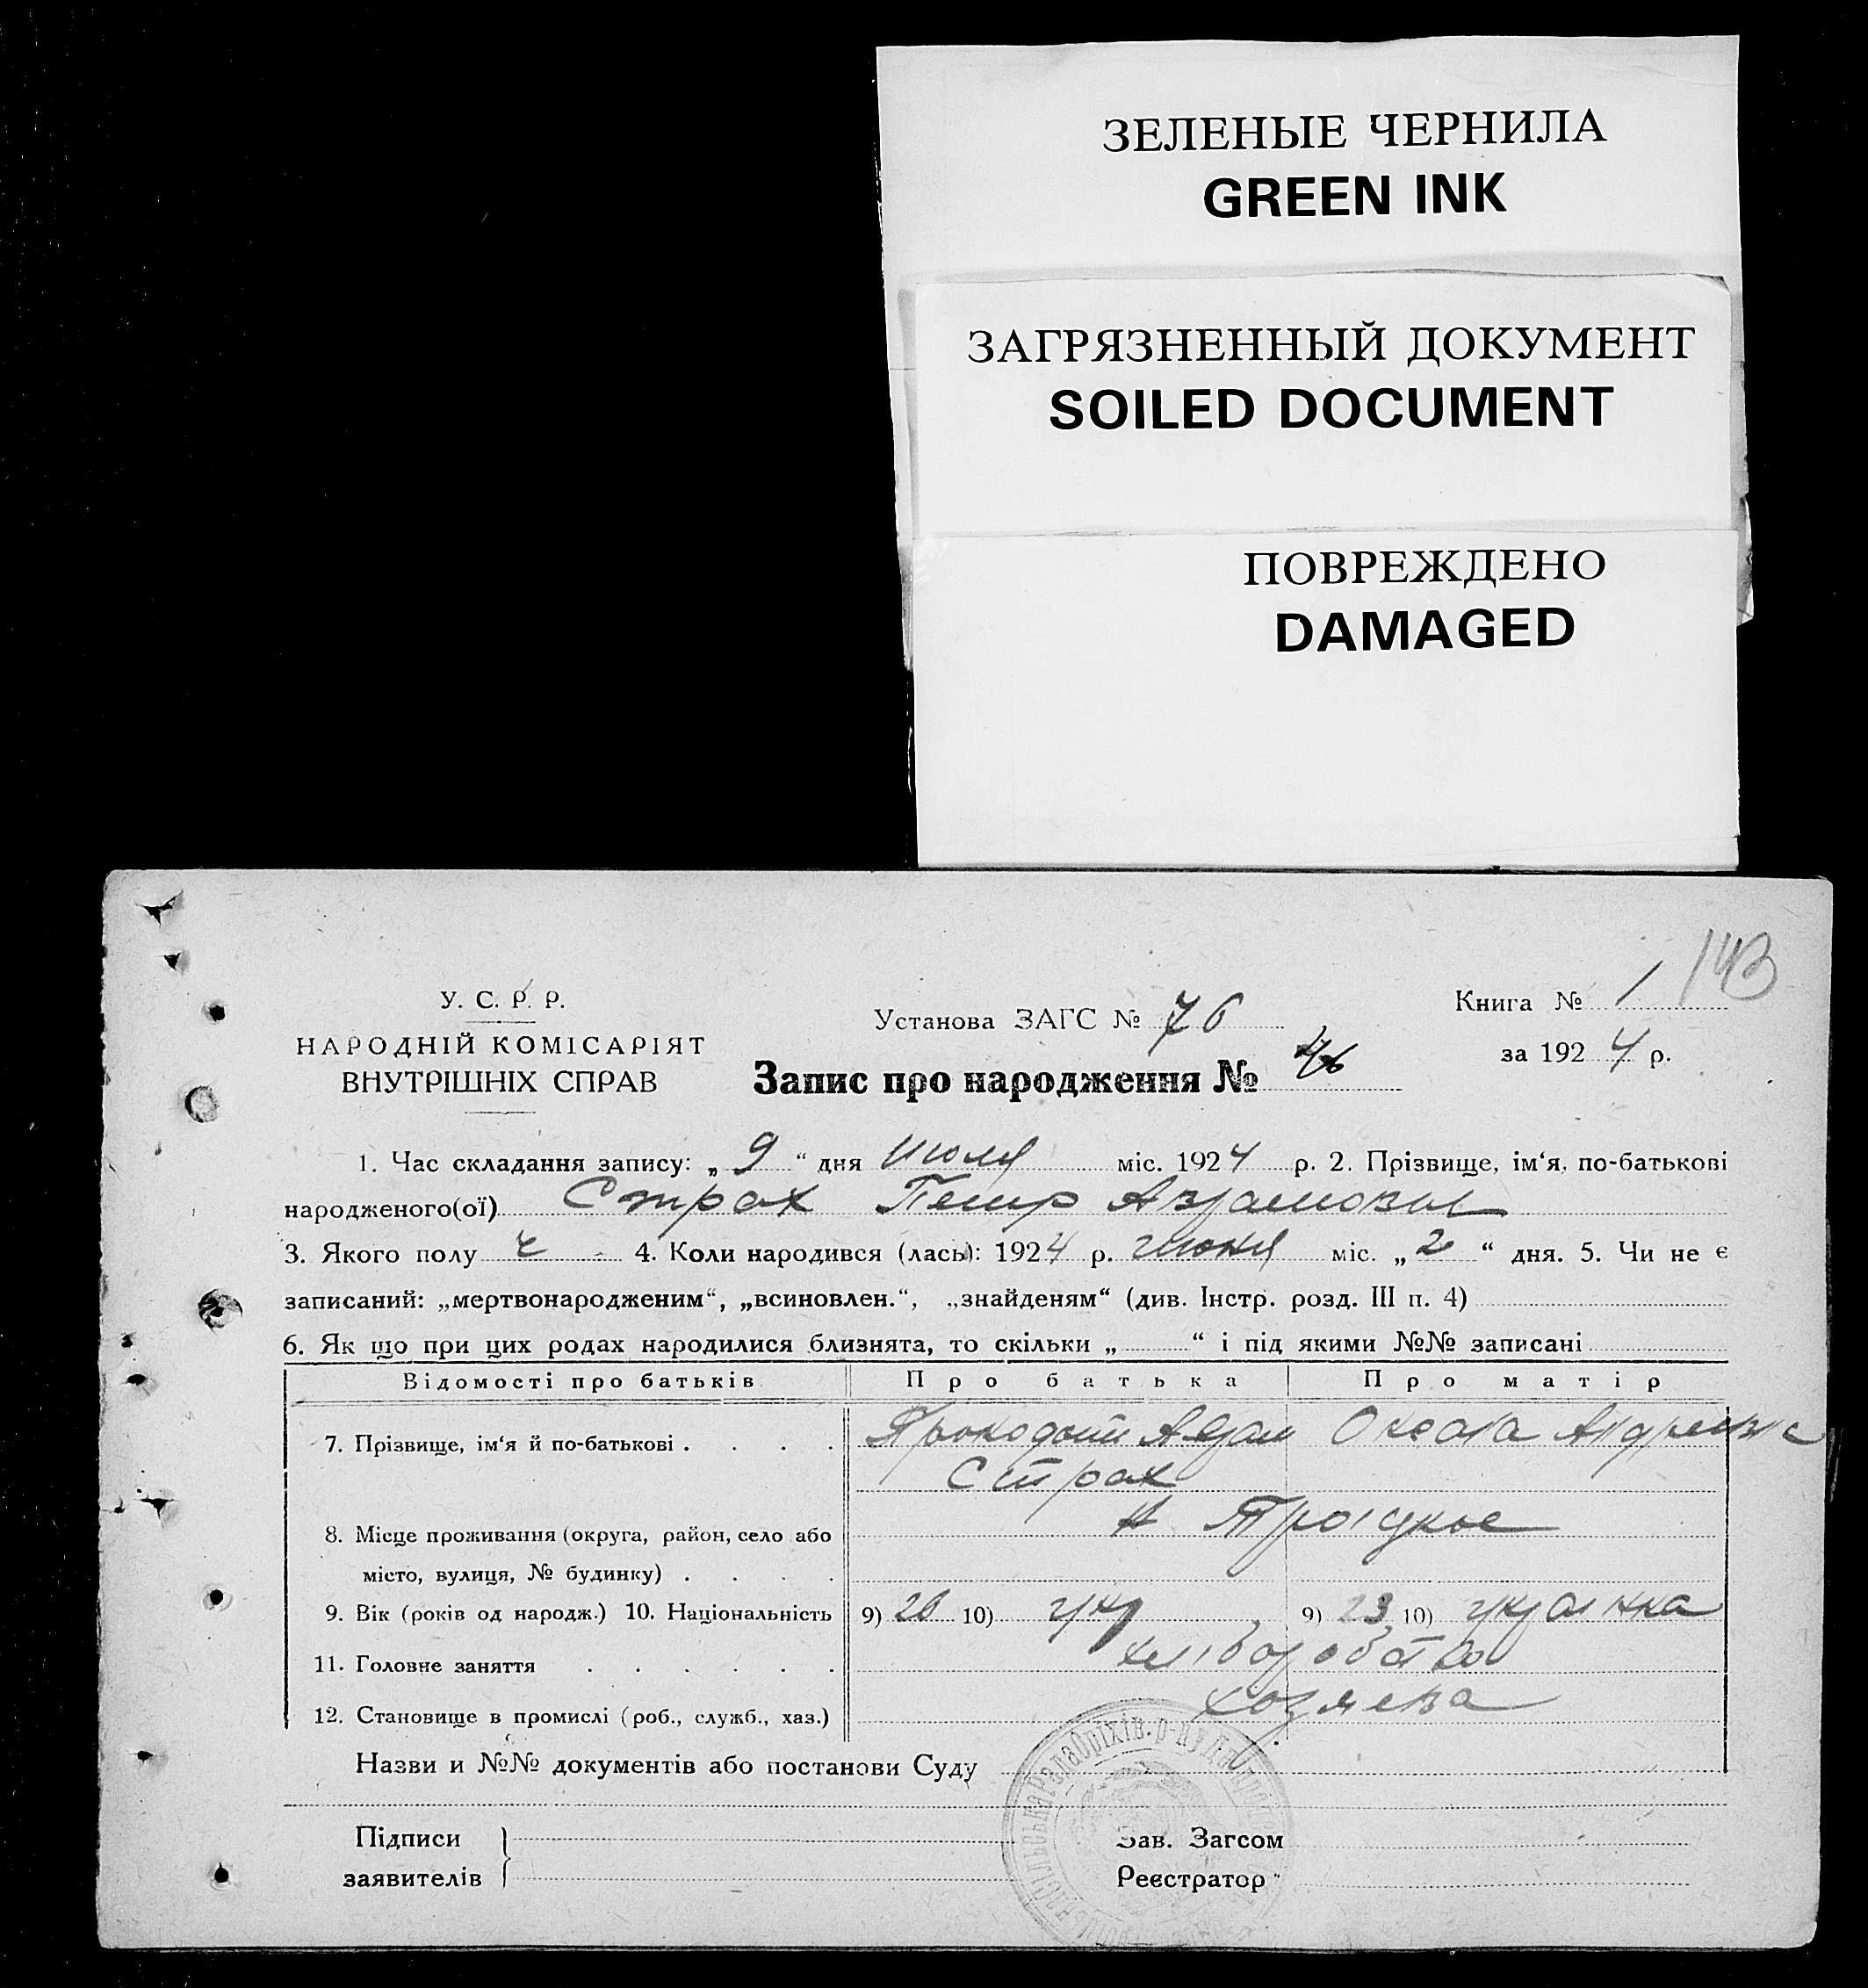 ЗЕЛЕНЫЕ ЧЕРНИЛА
GREEN INK
ЗАГРЯЗНЕННЫЙ ДОКУМЕНТ
SOILED DOCUMENT
ПОВРЕЖДЕНО
DAMAGED
143
У. С. Р. Р.
НАРОДНІЙ КОМІСАРІЯТ
ВНУТРІШНІХ СПРАВ
Установа ЗАГС № 76
Запис про народження № 46
Книга № 1
за 1924 р.
1. Час складання запису: „ 9 “ дня июля міс. 1924 р. 2. Прізвище, ім‘я, по-батькові
народженого(ої) Страх Петр
3. Якого полу ч 4. Коли народився (лась): 1924 р. июня міс. „ 2 “ дня. 5. Чи не є
записаний: „мертвонародженим“, „всиновлен.“, „знайденям“ (див. Інстр. розд. III п. 4)
6. Як що при цих родах народилися близнята, то скільки „ “ і під якими №№ записані
Відомості про батьків Про батька Про матір
7. Прізвище, ім‘я й по-батькові . . . . Адам Оксана
Страх
8. Місце проживання (округа, район, село або Н Троїцкое
місто, вулиця, № будинку) . . . .
9. Вік (років од народж.) 10. Національність 9) 26 10) укр 9) 23 10) украинка
11. Головне заняття . . . . . . хлібороботво
12. Становище в промислі (роб., служб., хаз.) хозяева
Назви и №№ документів або постанови Суду
Підписи
заявителів
Зав. Загсом
Реєстратор